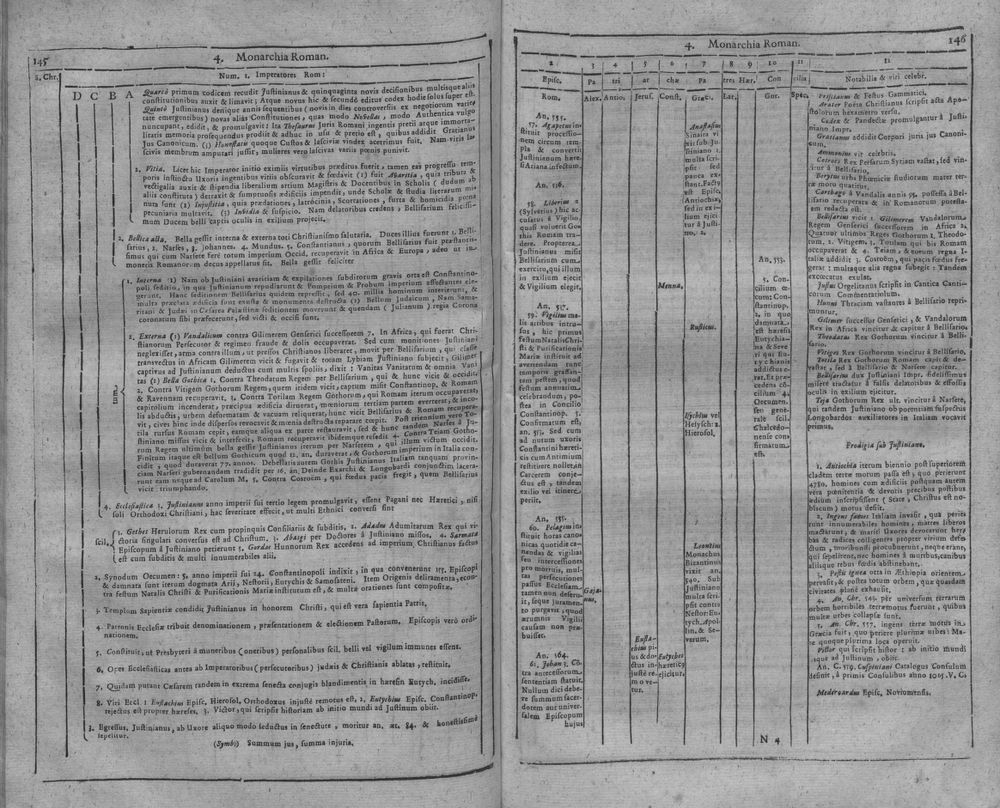 145
4. Monarchia Roman.
à. Chr.
Num. 1. Imperatores Rom:
D C B A
Quartò primum codicem recusit Justinianus & quinquaginta novis decisionibus multisque aliis
constitutionibus auxit & limavit; Atque novus hic & secundò editus codex hodie solus super est.
Quintò Justinianus denique annis sequentibus (novis in dies controversiis ex negotiorum varie
tate emergentibus) novas alias Constitutiones, quas modo Novellas, modo Authentica vulgo
nuncupant, edidit, & promulgavit: Ita Thesaurus Juris Romani ingentis pretii atque immorta-
litatis memoria prosequendus prodiit & adhuc in usu & pretio est, quibus addidit Gratianus
Jus Canonicum. (3) Honestatis quoque Custos & lasciviæ vindex acerrimus fuit. Nam viris la-
scivis membrum amputari jussit, mulieres vero lascivas variis pœnis punivit.
2. Vitia. Licet hic Imperator initio eximiis virtutibus præditus fuerit, tamen eas progressu tem-
poris instinctu Uxoris ingentibus vitiis obscuravit & fœdavit (1) fuit Avaritia, quia tributa &
vectigalia auxit & stipendia liberalium artium Magistris & Docentibus in Scholis (dudum ab
aliis constituta) detraxit & sumptuosis ædificiis impendit, unde Scholæ & studia literarum mi-
nuta sunt (2) Injustitia, quia prædationes, latrocinia, Scortationes, furta & homicidia pœna
pecuniaria mulctavit. (3) Invidia & suspicio. Nam delatoribus credens, Bellisarium felicissi-
mum Ducem belli captis oculis in exilium projecit.
2. Bellica alia. Bella gessit interna & externa toti Christianismo salutaria. Duces illius fuerunt 1. Belli-
sarius, 2. Narses, 3. Johannes. 4. Mundus. 5. Constantianus; quorum Bellisarius fuit præstantis-
simus qui cum Narsete ferè totum imperium Occid. recuperavit in Africa & Europa, adeo ut in
moneris Romanorum decus appellatus sit. Bella gessit feliciter
1. Interna (1) Nam ob Justiniani avaritiam & expilationes subditorum gravis orta est Constantino-
poli. seditio, in qua Justinianum repudiarunt & Pompeium & Probum imperium affectantes ele-
gerunt. Hanc seditionem Bellisarius quidem repressit, sed 40. millia hominum interierunt, &
multa præclara ædificia sunt exusta & monumenta destructa (2) Bellum Judaicum, Nam Sama-
ritani & Judæi in Cæsarea Palæstinæ seditionem moverunt & quendam (Julianum) regia Corona
coronatum sibi præfecerunt, sed victi & occisi sunt.
2. Externa (1) Vandalicum contra Gilimerem Genserici successorem 7. In Africa, qui fuerat Chri-
stianorum Persecutor & regimen fraude & dolis occupaverat. Sed cum monitiones Justiniani
neglexisset, arma contra illum, ut pressos Christianos liberaret, movit per Bellisarium, qui classe
transvectus in Africam Gilimerem vicit & fugavit & totam Lybiam Justiniano subjecit, Gilimer
captivus ad Justinianum deductus cum multis spoliis, dixit: Vanitas Vanitatum & omnia Vani
tas (2) Bella Gothica 1. Contra Theodatum Regem per Bellisarium, qui & hunc vicit & occidit.
2. Contra Vitigem Gothorum Regem, quem itidem vicit, captum misit Constantinop. & Romam
& Ravennam recuperavit. 3. Contra Totilam Regem Gothorum, qui Romam iterum occuparat,
capitolium incenderat, præcipua ædificia diruerat, mœniorum tertiam partem everterat, & inco-
lis abductis, urbem deformatam & vacuam reliquerat, hunc vicit Bellisarius & Romam recupera-
vit, cives hinc inde dispersos revocavit & mœnia destructa reparare cœpit. Post triennium vero To-
tila rursus Romam cepit, eamque aliqua ex parte restauravit, sed & hunc tandem Narses à Ju-
stiniano missus vicit & interfecit, Romam recuperavit ibidemque resedit 4. Contra Teiam Gotho-
rum Regem ultimum bella gessit Justinianus iterum per Narsetem, qui illum victum occidit.
Finitum itaque est bellum Gothicum quod 21. an. duraverat, & Gothorum imperium in Italia con-
cidit, quod duraverat 77. annos. Debellatis autem Gothis Justinianus Italiam tanquam provin-
ciam Narseti gubernandam tradidit per 16. an. Deinde Exarchi & Longobardi conjunctim lacera-
runt eam usque ad Carolum M. 5. Contra Cosroëm, qui fœdus pacis fregit, quem Bellisarius
vicit triumphando.
4. Ecclesiastica 3. Justinianus anno imperii sui tertio legem promulgavit, essent Pagani nec Hæretici, nisi
soli Orthodoxi Christiani, hac severitate effecit, ut multi Ethnici conversi sint
scil.
1. Gethes Herulorum Rex cum propinquis Consiliariis & subditis, 2. Adadus Adumitarum Rex qui vi-
ctoria singulari conversus est ad Christum. 3. Abasgi per Doctores à Justiniano missos. 4. Sarmatæ
Episcopum à Justiniano petierunt 5. Gordas Hunnorum Rex accedens ad imperium Christianus factus
est cum subditis & multi innumerabiles alii.
2. Synodum Oecumen: 5. anno imperii sui 24. Constantinopoli indixit, in qua convenerunt 165. Episcopi
& damnata sunt iterum dogmata Arii, Nestorii, Eutychis & Samosateni. Item Origenis deliramenta, econ-
tra festum Natalis Christi & Purificationis Mariæ institutum est, & multæ orationes sunt compositæ.
3. Templum Sapientiæ condidit Justinianus in honorem Christi, qui est vera sapientia Patris.
4. Patronis Ecclesiæ tribuit denominationem, præsentationem & electionem Pastorum, Episcopis verò ordi-
nationem.
5. Constituit, ut Presbyteri à muneribus (oneribus) personalibus scil. belli vel vigilum immunes essent.
6. Opes Ecclesiasticas antea ab Imperatoribus (persecutoribus) judæis & Christianis ablatas, restituit.
7. Quidam putant Cæsarem tandem in extrema senecta conjugis blandimentis in hæresin Eutych. incidisse.
8. Viri Eccl. 1 Eustachius Episc. Hierosol. Orthodoxus injustè remotus est, 2. Eutychius Episc. Constantinop.
rejectus est propter hæreses. 3. Victor, qui scripsit historiam ab initio mundi ad Justinum obiit.
3. Egressus. Justinianus, ab Uxore aliquo modo seductus in senectute, moritur an. æt. 84. & honestissimè
sepelitur.
(Symb:) Summum jus, summa injuria.
146
4. Monarchia Roman.
2 3 4 5 6 7 8 9 10 11 12
Episc. Pa tri ar chæ Pa tres Hær. Con cilia Notabilia & viri celebr.
Rom. Alex. Antio. Jerus. Const. Græci. Lat. Gur. Spec.
An. 535.
57. Agapetus in
stituit processio-
nem circum tem-
pla & convertit
Justinianum hære-
si Ariana infectum.
An. 536.
58. Liberius 2
(Sylverius) hic ac-
cusatus à Vigilio,
quasi voluerit Go-
this Romam tra-
dere. Propterea
Justinianus misit
Bellisarium cum
exercitu, qui illum
in exilium ejecit
& Vigilium elegit.
An. 537.
59. Vigilius ma-
lis artibus intru-
sus, hic primus
festum Natalis Chri-
sti & Purificationis
Mariæ instituit ad
avertendam tunc
temporis grassan-
tem pestem, quod
festum annuatim
celebrandum, po-
stea in Concilio
Constantinop. 5.
Confirmatum est,
an. 553. Sed cum
ad nutum uxoris
Constantini hæreti-
cis cum Antimium
restituere nollet, in
Carcerem conje-
ctus est, tandem
exilio vel itinere
periit.
An. 555.
60. Pelagius in
stituit horas cano-
nicas quotidie ca-
nendas & vigilias
seu intercessiones
pro mortuis, mul-
tas persecutiones
passus Ecclesiam
tamen non deseru-
it, seque juramen-
to purgavit, quod
ærumnis Vigilii
causam non præ-
buisset.
An. 564.
61. Johan. 3. Có
tra antecessorum
sententiam statuit.
Nullum dici debe-
re summum sacer-
dotem aut univer-
salem Episcopum
hujus
Gaja-
nus,
Eusta-
chius pi-
us & do-
ctus in-
justè re-
mo ve-
tur.
Menna,
Eutyches
hæretico
ejicitur.
Anastasius
Sinaita vi
xit sub Ju-
stiniano 1.
multa scri-
psit sed
pauca ex-
stant. Factus
est Episc.
Antiochiæ,
sed in exi-
lium ejici
tur à Justi-
no, 2.
Rusticus.
Esychius vel
Helysch: 2.
Hierosol,
Leontius
Monachus
Bizantinus
vixit an.
540. Sub
Justiniano
multa scri-
psit contra
Nestor: Eu-
tych. Apol-
lin. & Se-
verum.
An. 553.
5. Con-
cilium œ-
cume: Con-
stantinop.
1. in quo
damnata
est hæresis
Eutychia-
na & Seve
ri qui Eu-
tychianis
addictus e-
rat. Et præ-
cedens cô-
cilium 4.
Oecumen.
seu gene-
rale scil.
Chalcedo-
nense con-
firmatum
est.
Priscianus & Festus Gammatici.
Arator Poëta Christianus scripsit acta Apo-
stolorum hexametro versu.
Codex & Pandectæ promulgantur à Justi-
niano Impr.
Gratianus addidit Corpori juris jus Canoni-
cum.
Ammonius vir celebris.
Cosroës Rex Persarum Syriam vastat, sed vin-
citur à Bellisario.
Berytus urbs Phœnicie studiorum mater ter-
ræ motu quatitur.
Carthago à Vandalis annis 95. possessa à Bel-
lisario recuperata & in Romanorum potesta-
tem redacta est.
Bellisarius vicit 1. Gilimerem Vandalorum
Regem Genserici successorem in Africa 2.
Quatuor ultimos Reges Gothorum 1. Theodo-
tum. 2. Vitigem. 3. Totilam qui bis Romam
occupaverat & 4. Teiam, & totum regna I-
taliæ addidit 3. Cosroëm, qui pacis fœdus fre-
gerat: multaque alia regna subegit: Tandem
excœcatus exulat.
Justus Orgelitanus scripsit in Cantica Canti-
corum Commentariolum.
Hunni Thraciam vastantes à Bellisario repri-
muntur.
Gilimer successor Genserici, & Vandalorum
Rex in Africa vincitur & capitur à Bellisario.
Theodatus Rex Gothorum vincitur à Belli-
sario.
Vitiges Rex Gothorum vincitur à Bellisario.
Totila Rex Gothorum Romam capit & de-
vastat, sed à Bellisario & Narsete capitur.
Bellisarius dux Justiniani Impr. fidelissimus
miserè tractatur à falsis delatoribus & effossis
oculis in exilium ejicitur.
Teja Gothorum Rex ult. vincitur à Narsete,
qui tandem Justiniano ob potentiam suspectus
Longobardos auxiliatores in Italiam evocat
primus.
Prodigia sub Justiniano.
1. Antiochia iterum biennio post superiorem
cladem terræ motum passa est, quo perierunt
4780. homines cum ædificiis posquam autem
vera pœnitentia & devotis precibus postibus
ædium inscripsissent (State, Christus est no-
biscum) motus desiit.
2. Ingens fames Italiam invasit, qua perits
sunt innumerabiles homines, matres liberos
mactarunt, & mariti Uxores devorarunt her-
bas & radices colligentes propter virium defe-
ctum, moribundi procubuerunt, neque erant,
qui sepelirent, nec homines à moribus, canibus
aliisque rebus fœdis abstinebant.
3. Pestis ignea orta in Æthiopia orientem
pervasit, & postea totum orbem, quæ quasdam
civitates planè exhausit.
4. An. Chr. 545. per universum terrarum
orbem horribiles terræmotus fuerunt, quibus
multæ urbes collapsæ sunt.
5. An. Chr. 557. ingens terræ motus in
Græcia fuit, quo periere plurimæ urbes: Ma-
re quoque plurima loca operuit.
Victor qui scripsit histor: ab initio mundi
usque ad Justinum, obiit.
An. C. 559. Cuspiniani Catalogus Consulum
desinit, à primis Consulibus anno 1045. V. C:
Medeoardus Episc. Noviomensis.
N 4